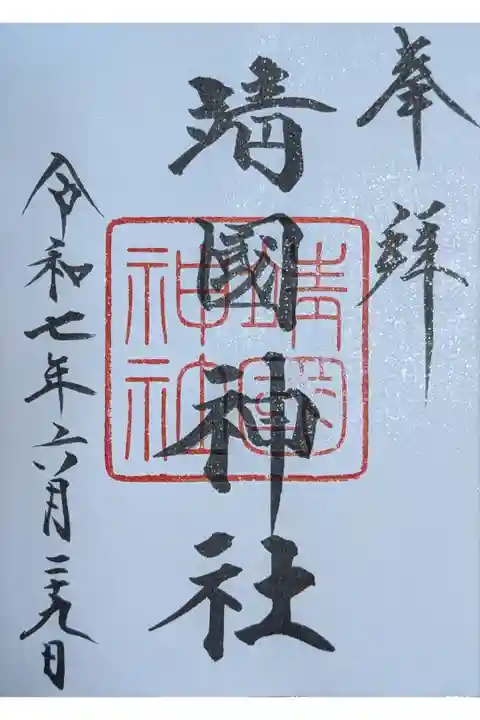 奉拝
靖國神社
令和七年六月二十九日
靖國
神社